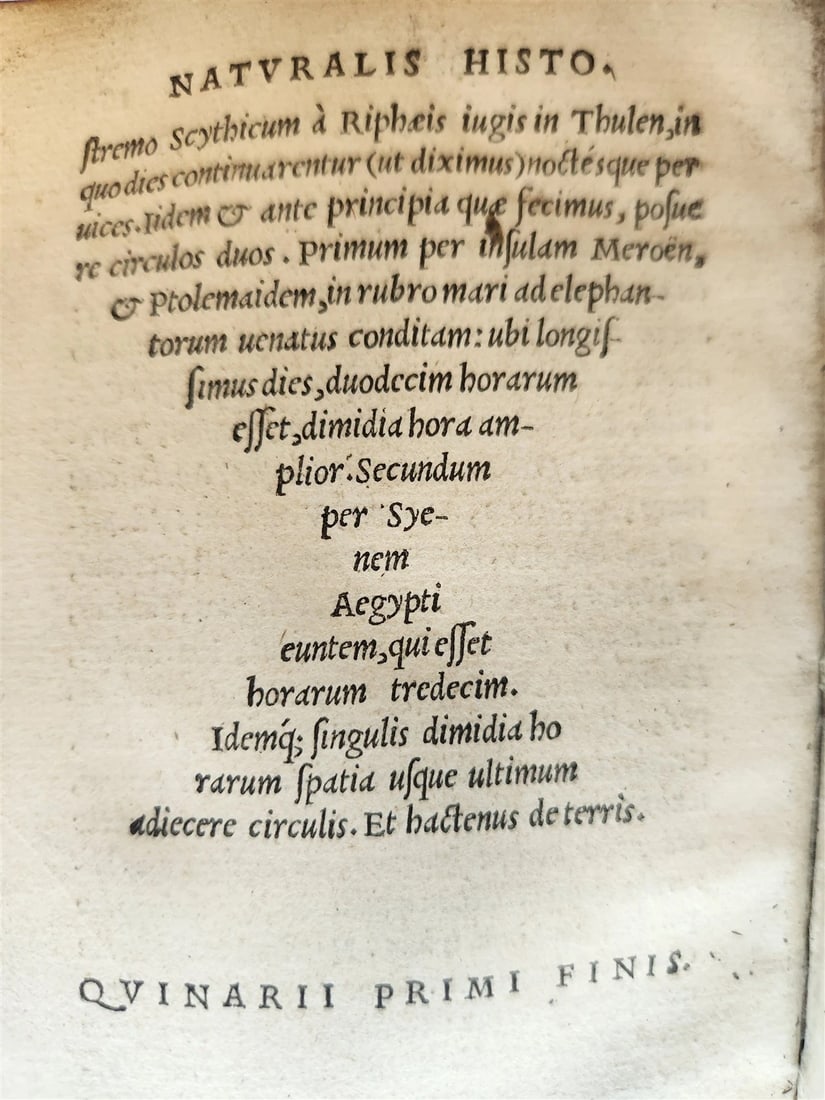 NATVRALIS HISTO.
ſtremo Scythicum à Riphæis iugis in Thulen, in
quo dies continuarentur (ut diximus) noctésque per
uices. Iidem & ante principia quæ fecimus, poſue
re circulos duos. Primum per inſulam Meroën,
& Ptolemaidem, in rubro mari ad elephan-
torum uenatus conditam: ubi longiſ-
ſimus dies, duodecim horarum
eſſet, dimidia hora am-
plior. Secundum
per Sye-
nem
Aegypti
euntem, qui eſſet
horarum tredecim.
Idemq́; ſingulis dimidia ho
rarum ſpatia uſque ultimum
adiecere circulis. Et hactenus de terris.
QVINARII PRIMI FINIS.